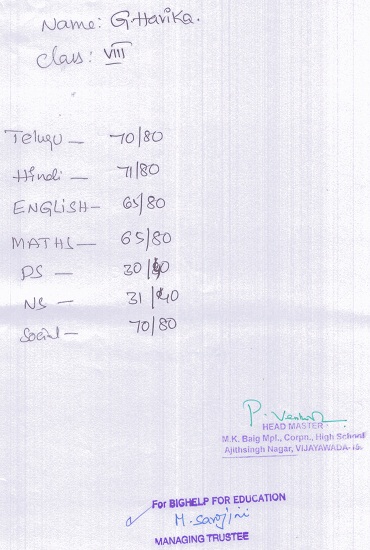 Name: G.Harika.
Class: VIII
Telugu — 70/80
Hindi — 71/80
ENGLISH — 65/80
MATHS — 65/80
PS — 30/40
NS — 31/40
Social — 70/80
P. Venkat
HEAD MASTER
M.K. Baig Mpl., Corpn., High School
Ajithsingh Nagar, VIJAYAWADA-15.
For BIGHELP FOR EDUCATION
M. Sarojini
MANAGING TRUSTEE